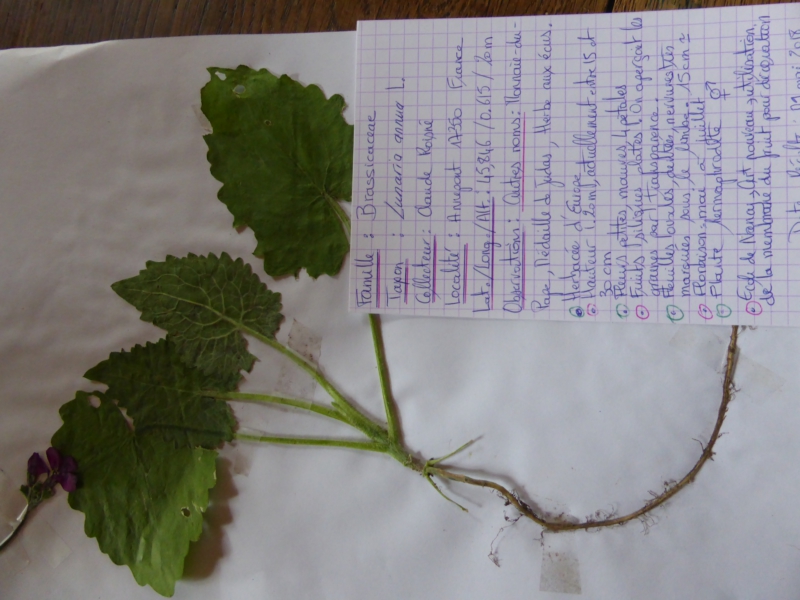 Famille : Brassicaceae
Taxon : Lunaria annua L.
Collecteur : Claude
Localité : Annepont 17350 France
Lat./Long./Alt. : 45.846 / 0.615 / 20m
Observations : Autres noms : Monnaie-du-
Pape, Médaille de Judas, Herbe aux écus.
Herbacée d'Europe
Hauteur 1,20m, actuellement entre 15 et
30 cm
Fleurs petites mauves 4 pétales
Fruits, siliques plates ! On aperçoit les
graines par transparence.
Feuilles ovales, dentées, nervures très
marquées sous le limbe. 15cm
Floraison : mai à juillet
Plante hermaphrodite ⚥
Ecole de Nancy → Art nouveau → utilisation
de la membrane du fruit pour décoration
Date Récolte : 01 mai 2018